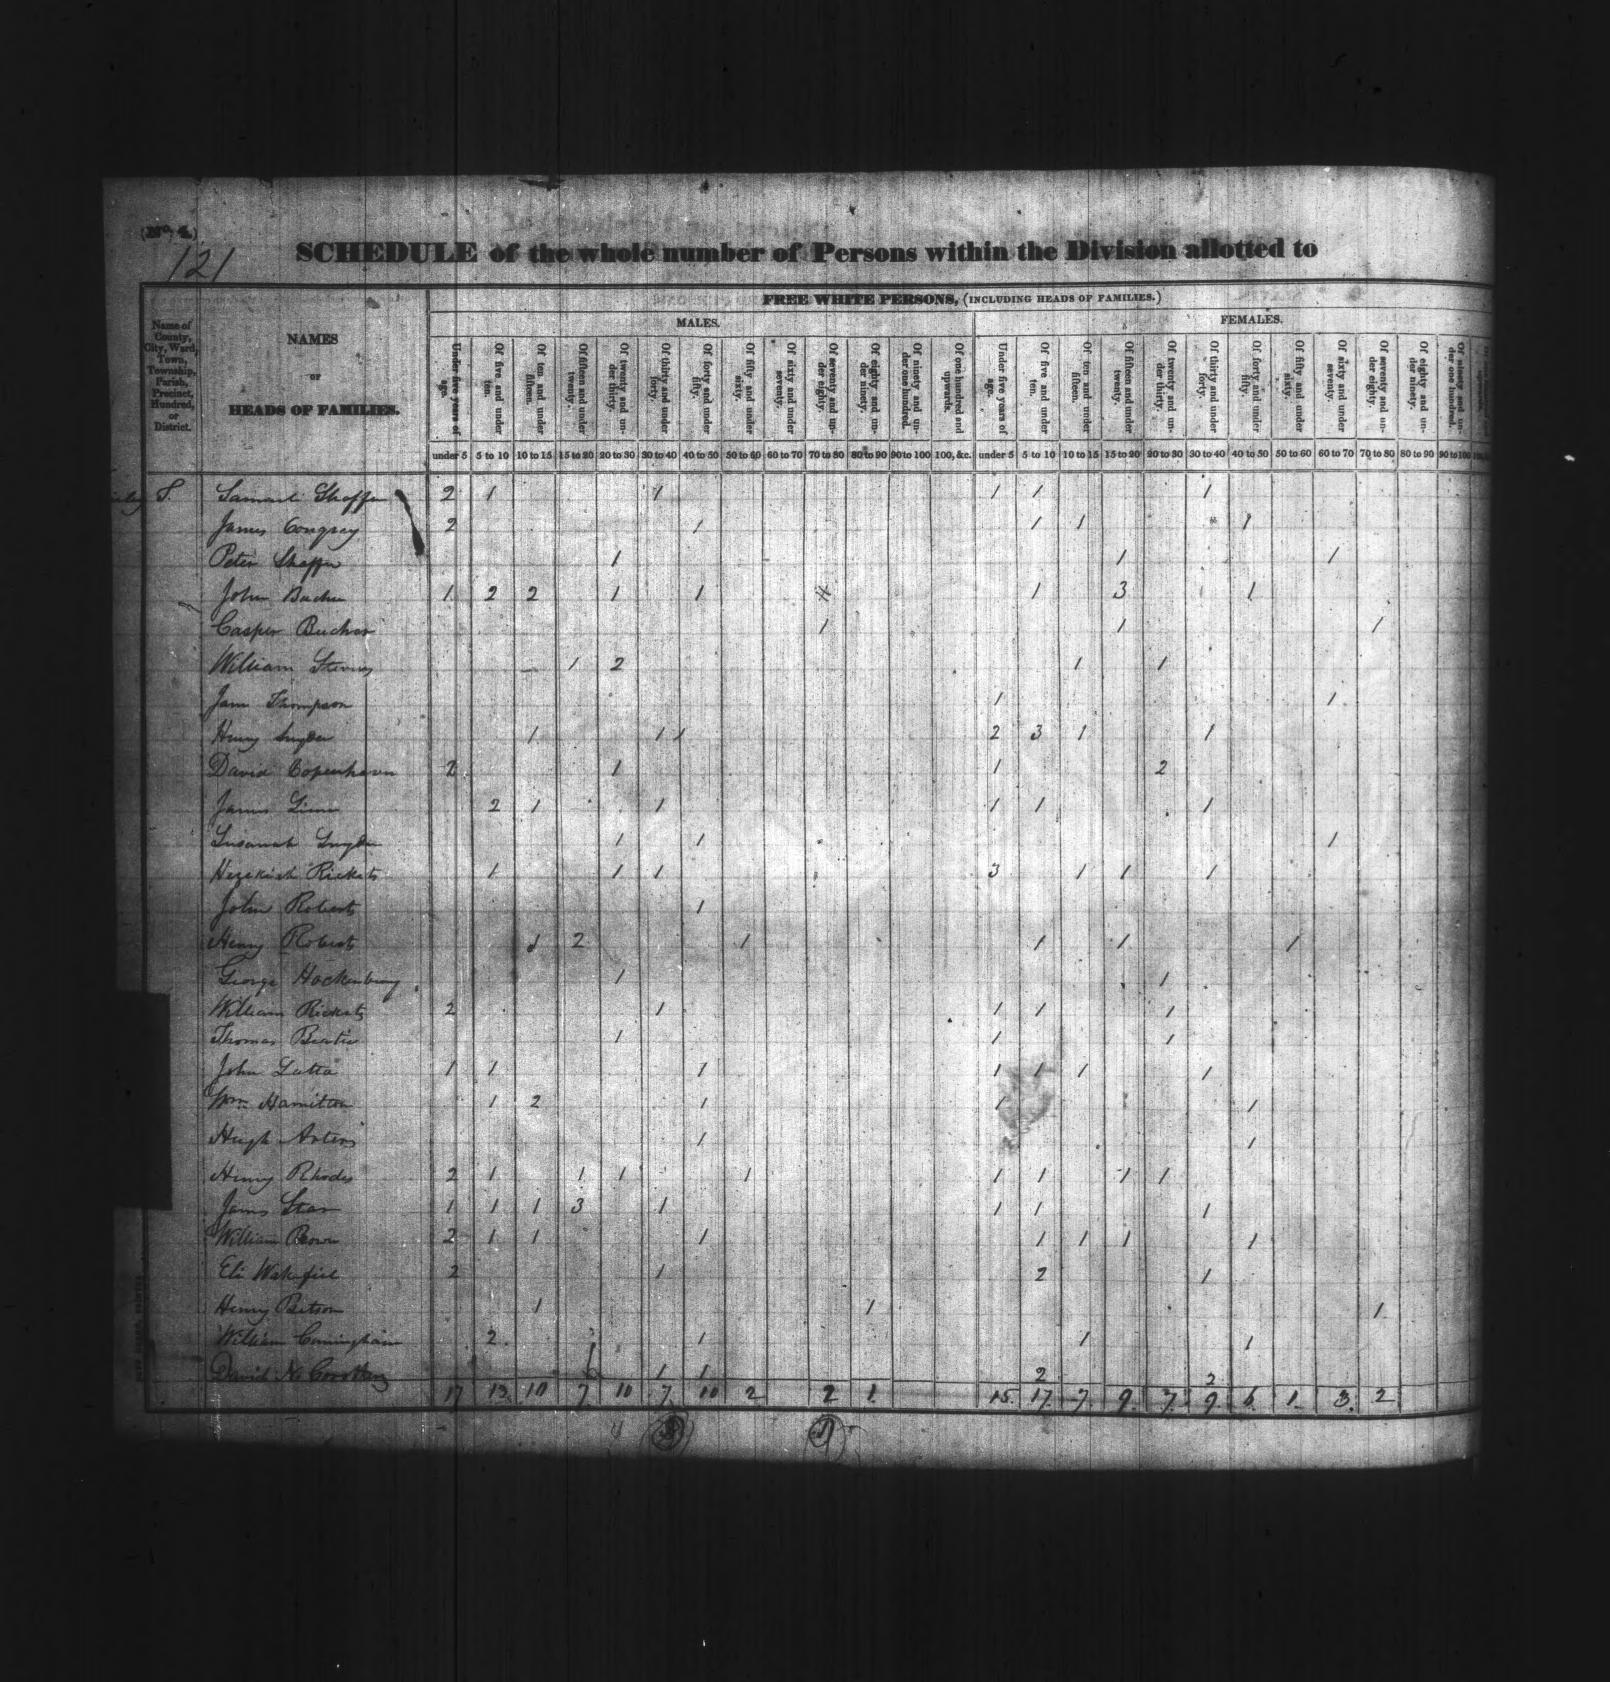 (No. 4.)
121
SCHEDULE of the whole number of Persons within the Division allotted to
FREE WHITE PERSONS, (INCLUDING HEADS OF FAMILIES.)
MALES. FEMALES.
Name of County, City, Ward, Town, Township, Parish, Precinct, Hundred, or District.
NAMES
OF
HEADS OF FAMILIES.
Under five years of age. Of five and under ten. Of ten and under fifteen. Of fifteen and under twenty. Of twenty and under thirty. Of thirty and under forty. Of forty and under fifty. Of fifty and under sixty. Of sixty and under seventy. Of seventy and under eighty. Of eighty and under ninety. Of ninety and under one hundred. Of one hundred and upwards. Under five years of age. Of five and under ten. Of ten and under fifteen. Of fifteen and under twenty. Of twenty and under thirty. Of thirty and under forty. Of forty and under fifty. Of fifty and under sixty. Of sixty and under seventy. Of seventy and under eighty. Of eighty and under ninety. Of ninety and under one hundred.
under 5 5 to 10 10 to 15 15 to 20 20 to 30 30 to 40 40 to 50 50 to 60 60 to 70 70 to 80 80 to 90 90 to 100 100, &c. under 5 5 to 10 10 to 15 15 to 20 20 to 30 30 to 40 40 to 50 50 to 60 60 to 70 70 to 80 80 to 90 90 to 100
Samuel Shaffer 2 1 1 1 1 1
James Congrey 2 1 1 1 1
Peter Shaffer 1 1 1
John Bucher 1 2 2 1 1 1 3 1
Casper Bucher 1 1 1
William Stevens 1 2 1 1
Jane Thompson 1 1
Henry Snyder 1 1 1 2 3 1 1
David Copenhaver 2 1 1 2
James Linn 2 1 1 1 1 1
Susanah Snyder 1 1 1
Hezekiah Rickets 1 1 1 3 1 1 1
John Roberts 1
Henry Roberts 1 2 1 1 1 1
George Hockenbury 1 1
William Rickets 2 1 1 1 1
Thomas Beatie 1 1 1
John Latta 1 1 1 1 1 1 1
Wm Hamilton 1 2 1 1 1
Hugh 1 1
Henry Rhodes 2 1 1 1 1 1 1 1 1
James Star 1 1 1 3 1 1 1 1
William Brown 2 1 1 1 1 1 1 1
Eli Wakefield 2 1 2 1
Henry Betson 1 1 1
William Cuningham 2 1 1 1
David 1 1 2 2
17 13 10 7 10 7 10 2 2 1 15 17 7 9 7 9 6 1 3 2